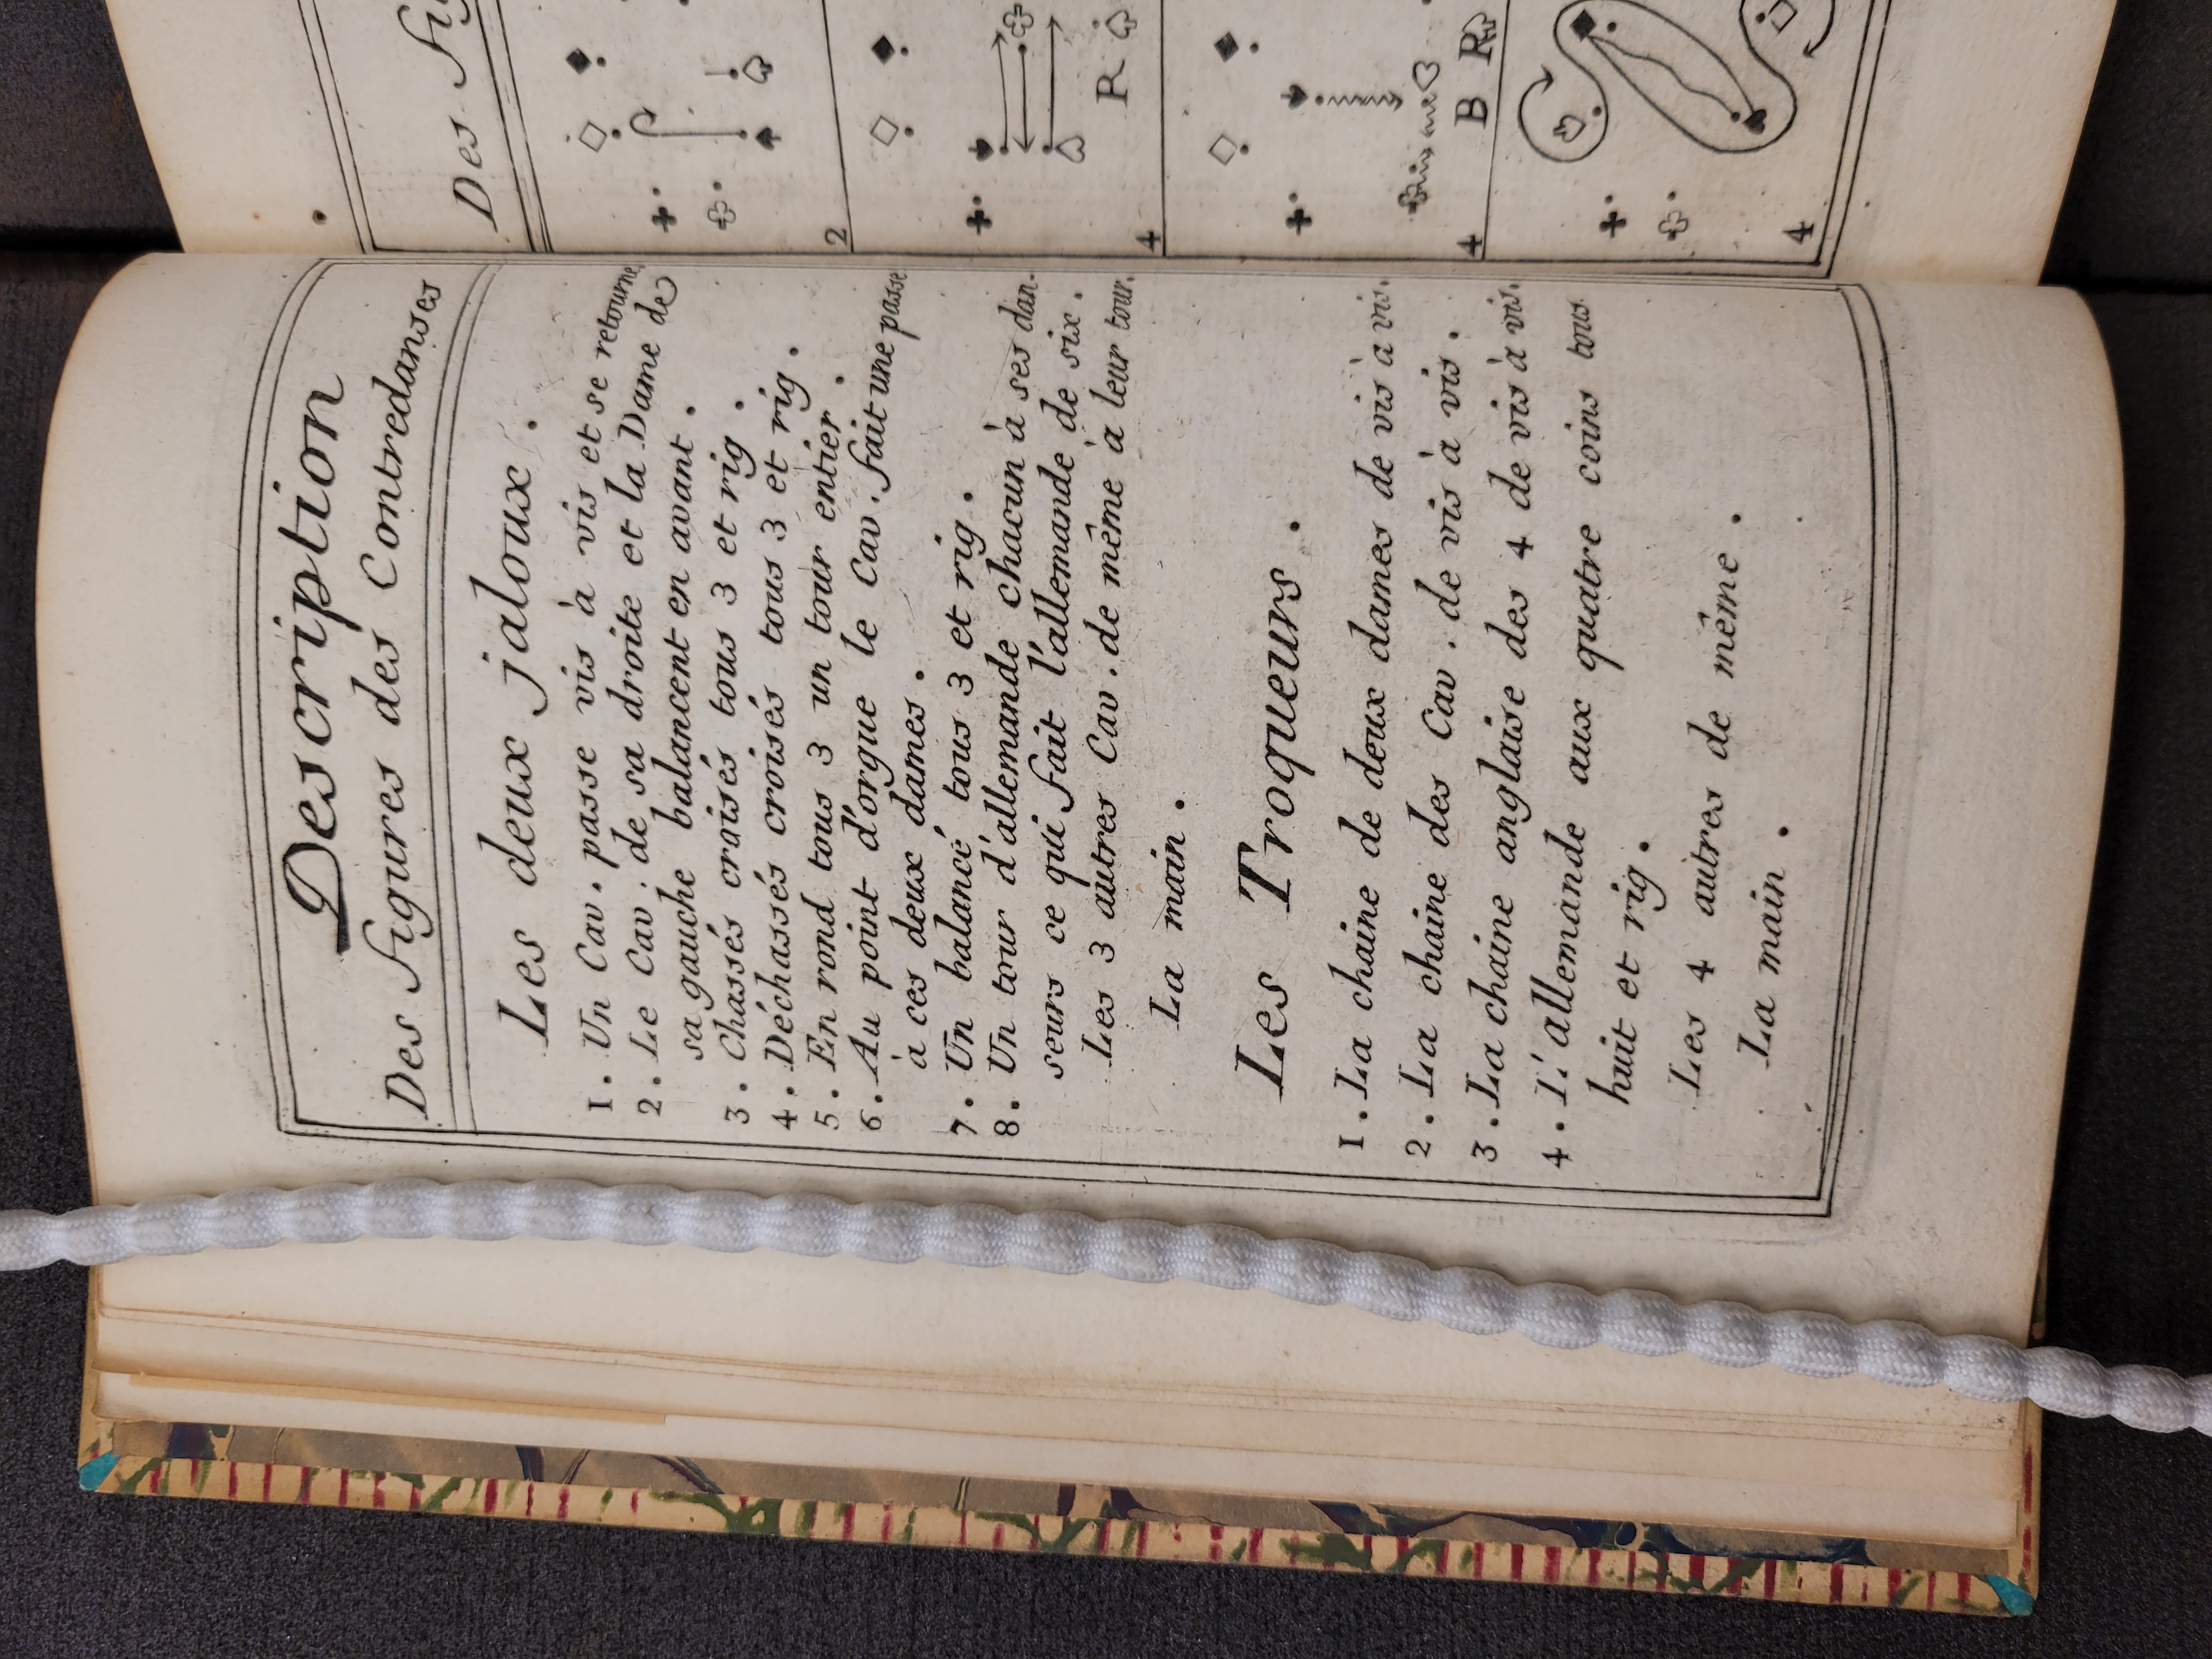 Description
Des Figures des Contredanses
Les deux jaloux .
1 . Un Cav . passe vis à vis et se retourne
2 . Le Cav . de sa droite et la Dame de
sa gauche balancent en avant .
3 . Chassés croisés tous 3 et rig .
4 . Déchassés croisés tous 3 et rig .
5 . En rond tous 3 un tour entier .
6 . Au point d'orgue le Cav . fait une passe
à ces deux dames .
7 . Un balancé tous 3 et rig .
8 . Un tour d'allemande chacun à ses dan-
seurs ce qui fait l'allemande de six .
Les 3 autres Cav . de même à leur tour.
La main .
Les Troqueurs .
1 . La chaine de deux dames de vis à vis.
2 . La chaine des Cav . de vis à vis .
3 . La chaine anglaise des 4 de vis à vis.
4 . L'allemande aux quatre coins tous
huit et rig .
Les 4 autres de même .
La main .
Des Fig
2
4
R
4
B R
4